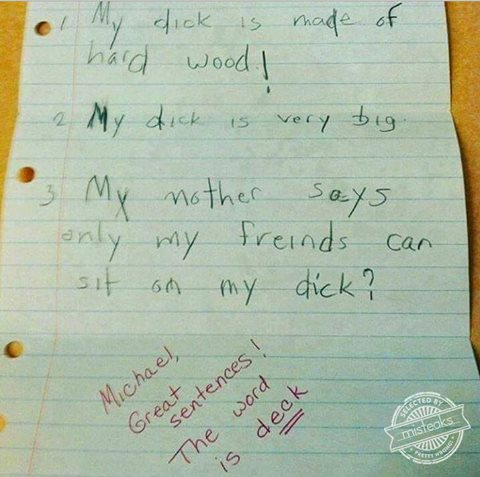 1 My dick is made of
hard wood!
2 My dick is very big.
3 My mother says
only my freinds can
sit on my dick?
Michael,
Great
sentences!
The word
is deck
SELECTED BY
misteaks